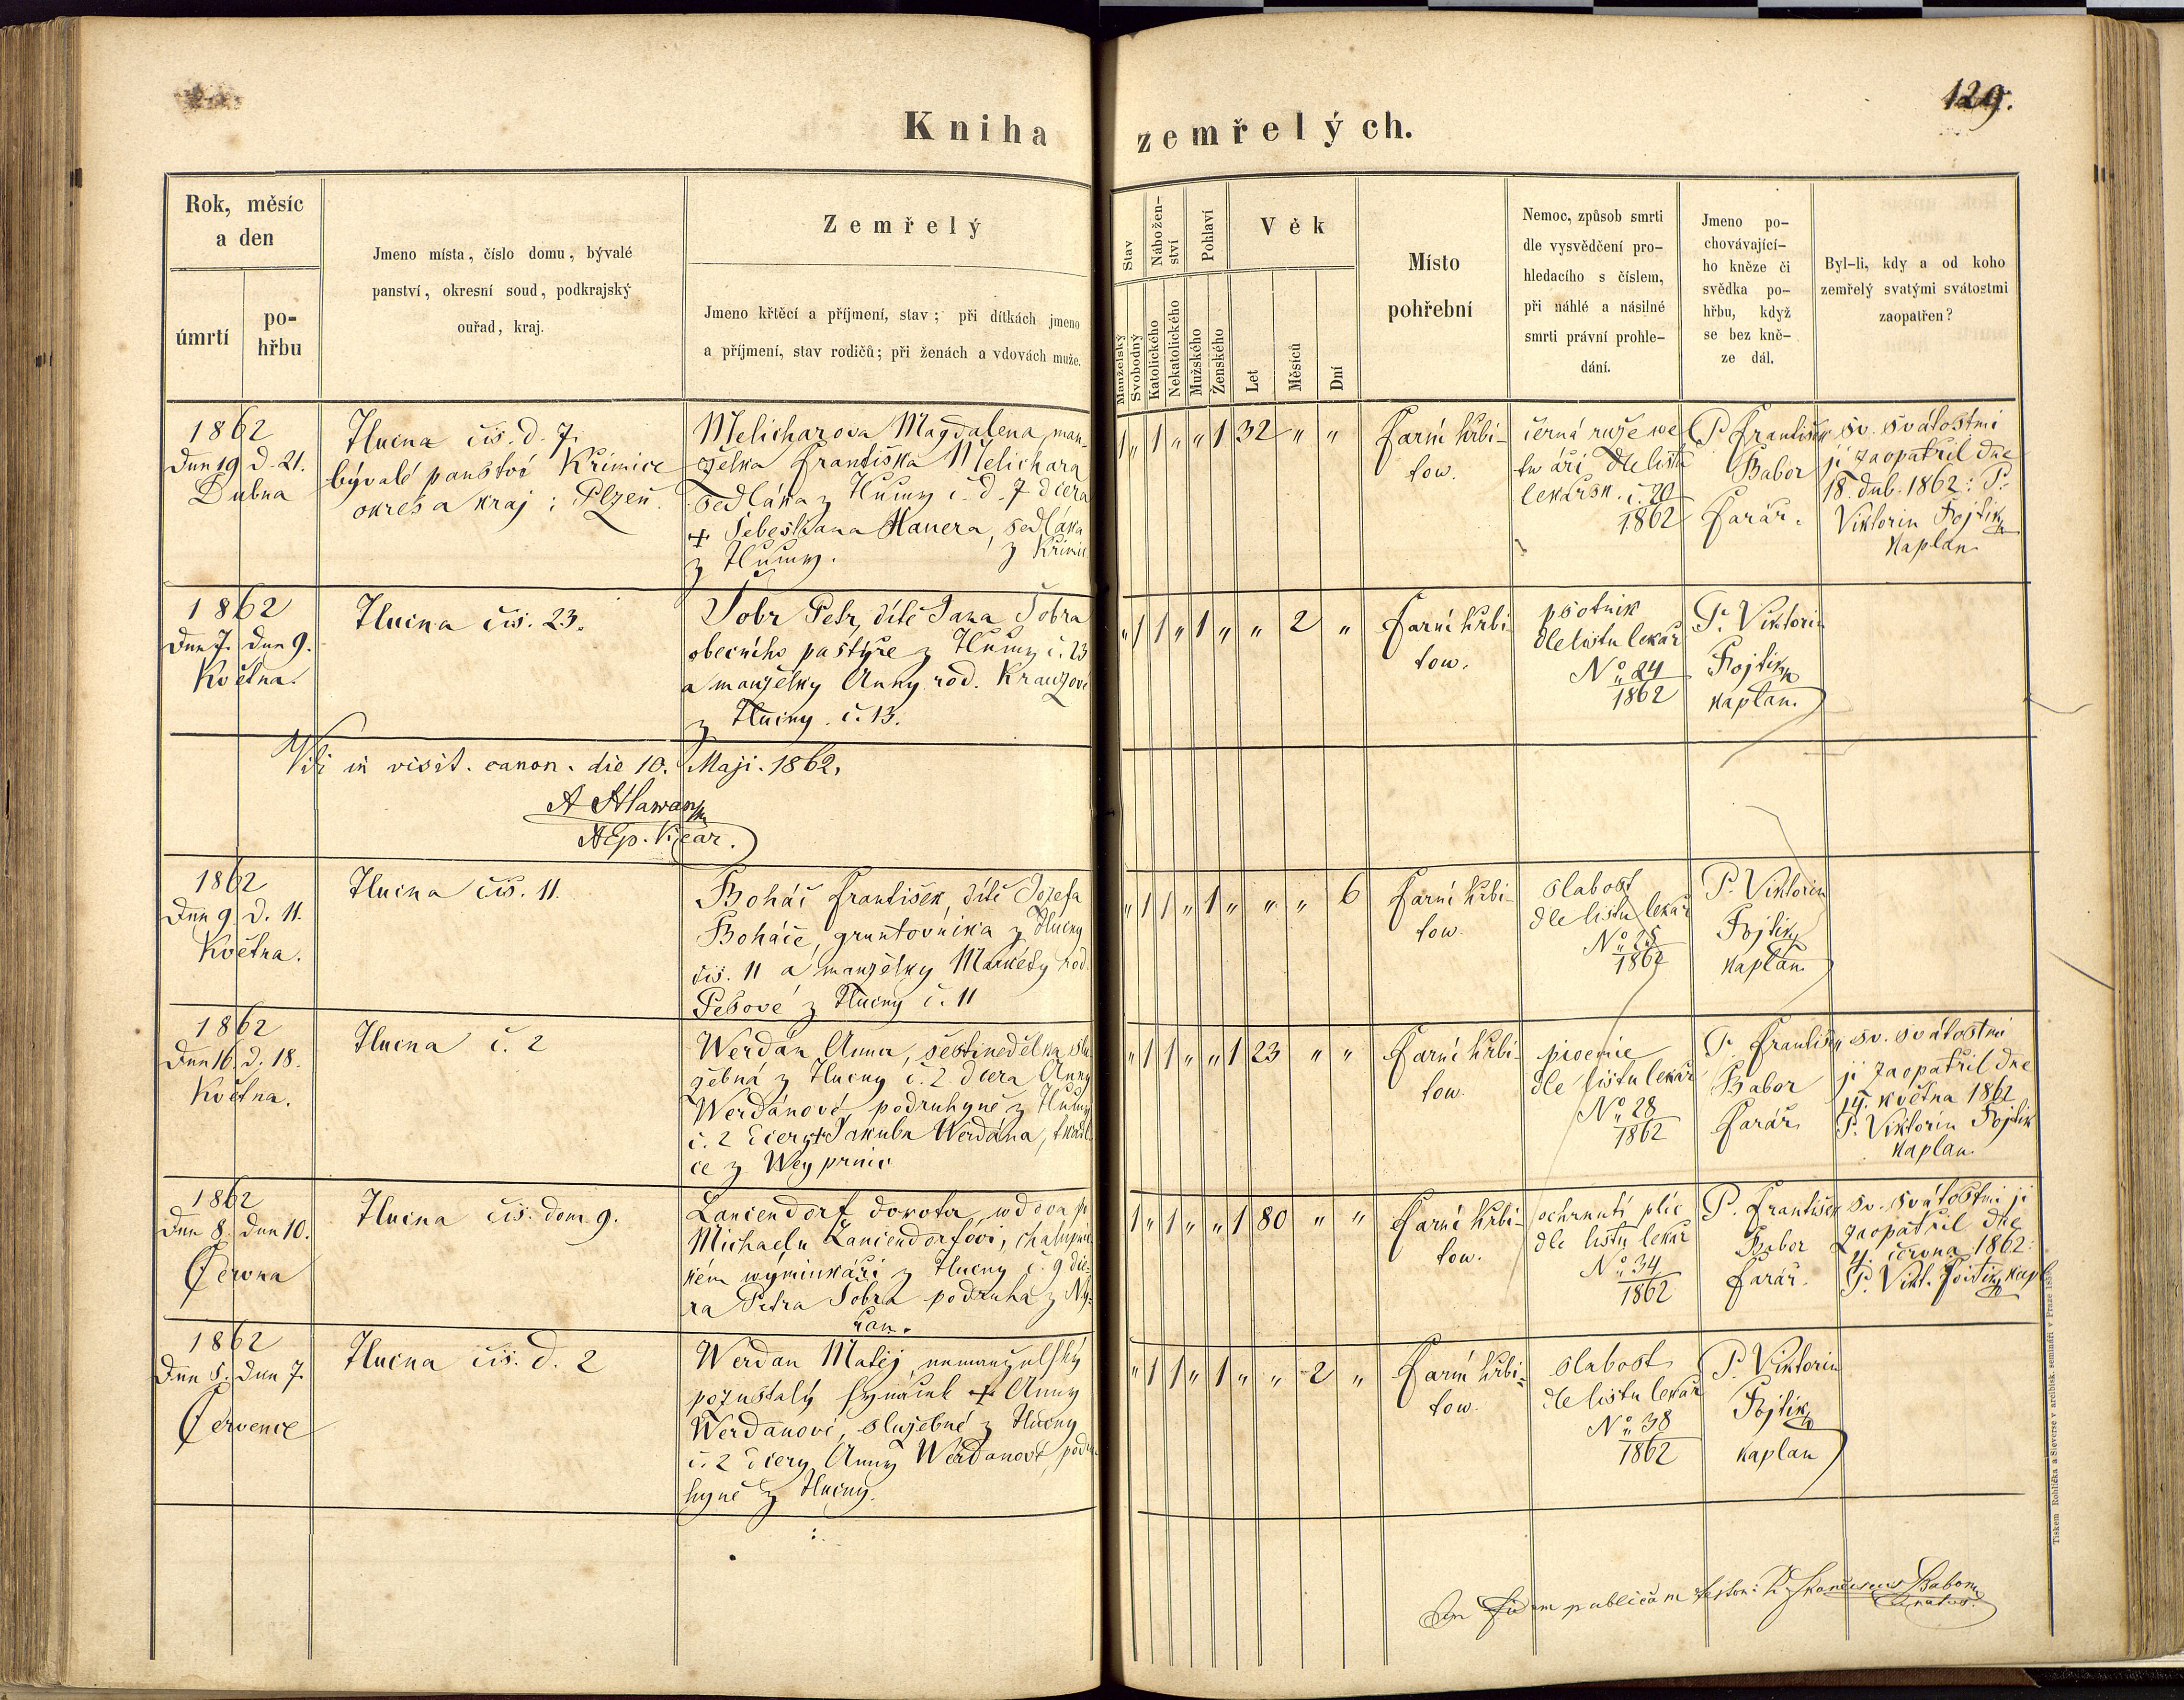 129.
Kniha zemřelých.
Rok, měsíc
a den
úmrtí
po-
hřbu
Jmeno místa, číslo domu, bývalé
panství, okresní soud, podkrajský
ouřad, kraj.
Zemřelý
Jmeno křtěcí a příjmení, stav; při dítkách jmeno
a příjmení, stav rodičů; při ženách a vdovách muže.
Stav
Manželský
Svobodný
Nábožen-
ství
Katolického
Nekatolického
Pohlaví
Mužského
Ženského
Věk
Let
Měsíců
Dní
Místo
pohřební
Nemoc, způsob smrti
dle vysvědčení pro-
hledacího s číslem,
při náhlé a násilné
smrti právní prohle-
dání.
Jmeno po-
chovávající-
ho kněze či
svědka po-
hřbu, když
se bez kně-
ze dál.
Byl-li, kdy a od koho
zemřelý svatými svátostmi
zaopatřen?
1862
Dne 19 d. 21.
Dubna
Hlucna čís. d. 7.
bývalé panství Křimice
okres a kraj: Plzeň.
Melicharova Magdalena, man-
želka Františka Melichara
sedláka z Hlucny č. d. 7 dcera
+ Sebestiana Hauera, sedláka
z Hlucny. z Křimic
1 „ 1 „ „ 1 32 „ „
Farní hřbi-
tow.
černá ruže we
twáři dle listu
lekařsk. č. 20
1862
P. František
Babor
Farář.
sv. svátostmi
ji zaopatřil dne
18. dub. 1862: P.
Viktorin Fojtík
Kaplan
1862
Dne 7. Dne 9.
Května.
Hlucna čís. 23.
Šobr Petr, dítě Jana Šobra
obecního pastýře z Hlucny č. 23
a manželky Anny rod. Krauzové
z Hlucny. č. 13.
„ 1 1 „ 1 „ „ 2 „
Farní hřbi-
tow.
psotník
dle listu lekař
No. 24
1862
P. Viktorin
Fojtík
kaplan.
Vidi in visit. canon. die 10. Maji. 1862.
A Hlawan
AEp. Vicar.
1862
Dne 9 d. 11.
Května.
Hlucna čís. 11.
Boháč František, dítě Josefa
Boháče, gruntovníka z Hlucny
čís. 11 a manželky Markéty rod.
Pešové z Hlucny č. 11
„ 1 1 „ 1 „ „ „ 6
Farní hřbi-
tow.
slabost
dle listu lekař
No. 25
1862
P. Viktorin
Fojtík
kaplan.
1862
Dne 16. d. 18.
Května.
Hlucna č. 2
Werdán Anna, šestinedělka, slu
žebná z Hlucny č. 2 dcera Anny
Werdánové, podruhyně z Hlucny
č. 2 dcery + Jakuba Werdána, tkadl
ce z Weyprnic
„ 1 1 „ „ 1 23 „ „
Farní hřbi-
tow.
dle listu lekař
No. 28
1862
P. František
Babor
Farář
sv. svátostmi
ji zaopatřil dne
14. května 1862
P. Viktorin Fojtík
kaplan.
1862
Dne 8. Dne 10.
Června
Hlucna čís. dom 9.
Lanciendorf Dorota, wdova po
Michaelu Lanciendorfovi, chalupnic
kém wýminkáři z Hlucny č. 9 dce-
ra Petra Šobra podruha z Ný-
řan.
1 „ 1 „ „ 1 80 „ „
Farní hřbi-
tow.
ochrnutí plic
dle listu lekař
No. 34
1862
P. František
Babor
Farář.
Sv. svátostmi ji
zaopatřil dne
4. června 1862:
P. Vikt. Fojtík kapl
1862
Dne 5. Dne 7.
Července
Hlucna čís. d. 2
Werdan Matěj, nemanželský
pozustalý synáček + Anny
Werdanoví, služebné z Hlucny
č. 2 dcery Anny Werdanové, podru
hyně z Hlucny.
„ 1 1 „ 1 „ „ 2 „
Farní hřbi-
tow.
slabost
dle listu lekař
No. 38
1862
P. Viktorin
Fojtík
kaplan
In fidem publicam testor: P. Franciscus Babor
Curatus.
Tiskem Rohlíčka a Sieverse v arcibisk. semináři v Praze